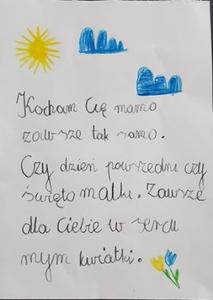 Kocham Cię mamo
zawsze tak samo.
Czy dzień powszedni czy
święto matki. Zawsze
dla Ciebie w sercu
mym kwiatki.